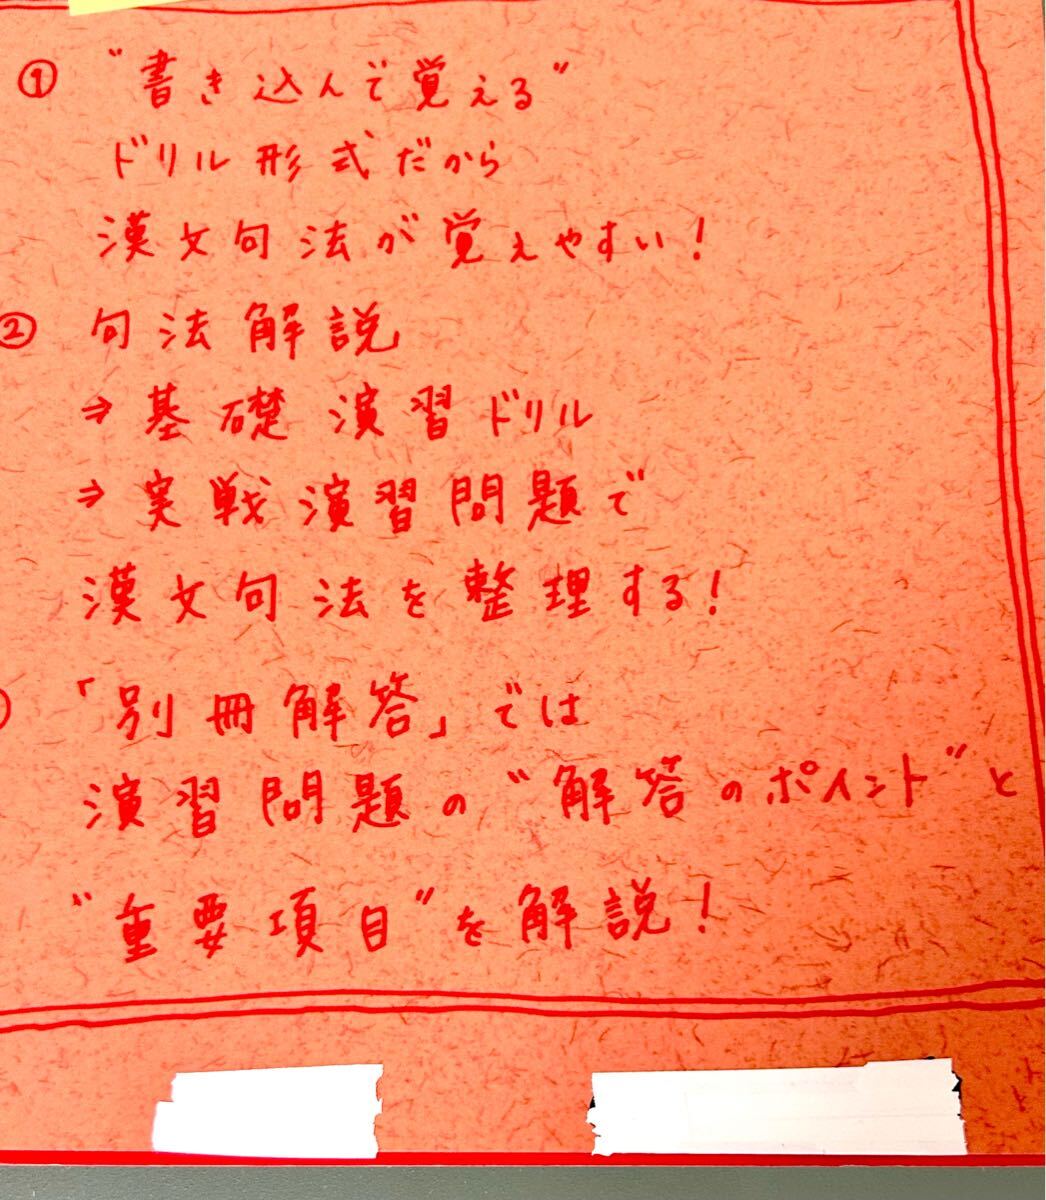 ① “書き込んで覚える”
ドリル形式だから
漢文句法が覚えやすい！
② 句法解説
⇒基礎演習ドリル
⇒実戦演習問題で
漢文句法を整理する！
「別冊解答」では
演習問題の“解答のポイント”と
“重要項目”を解説！